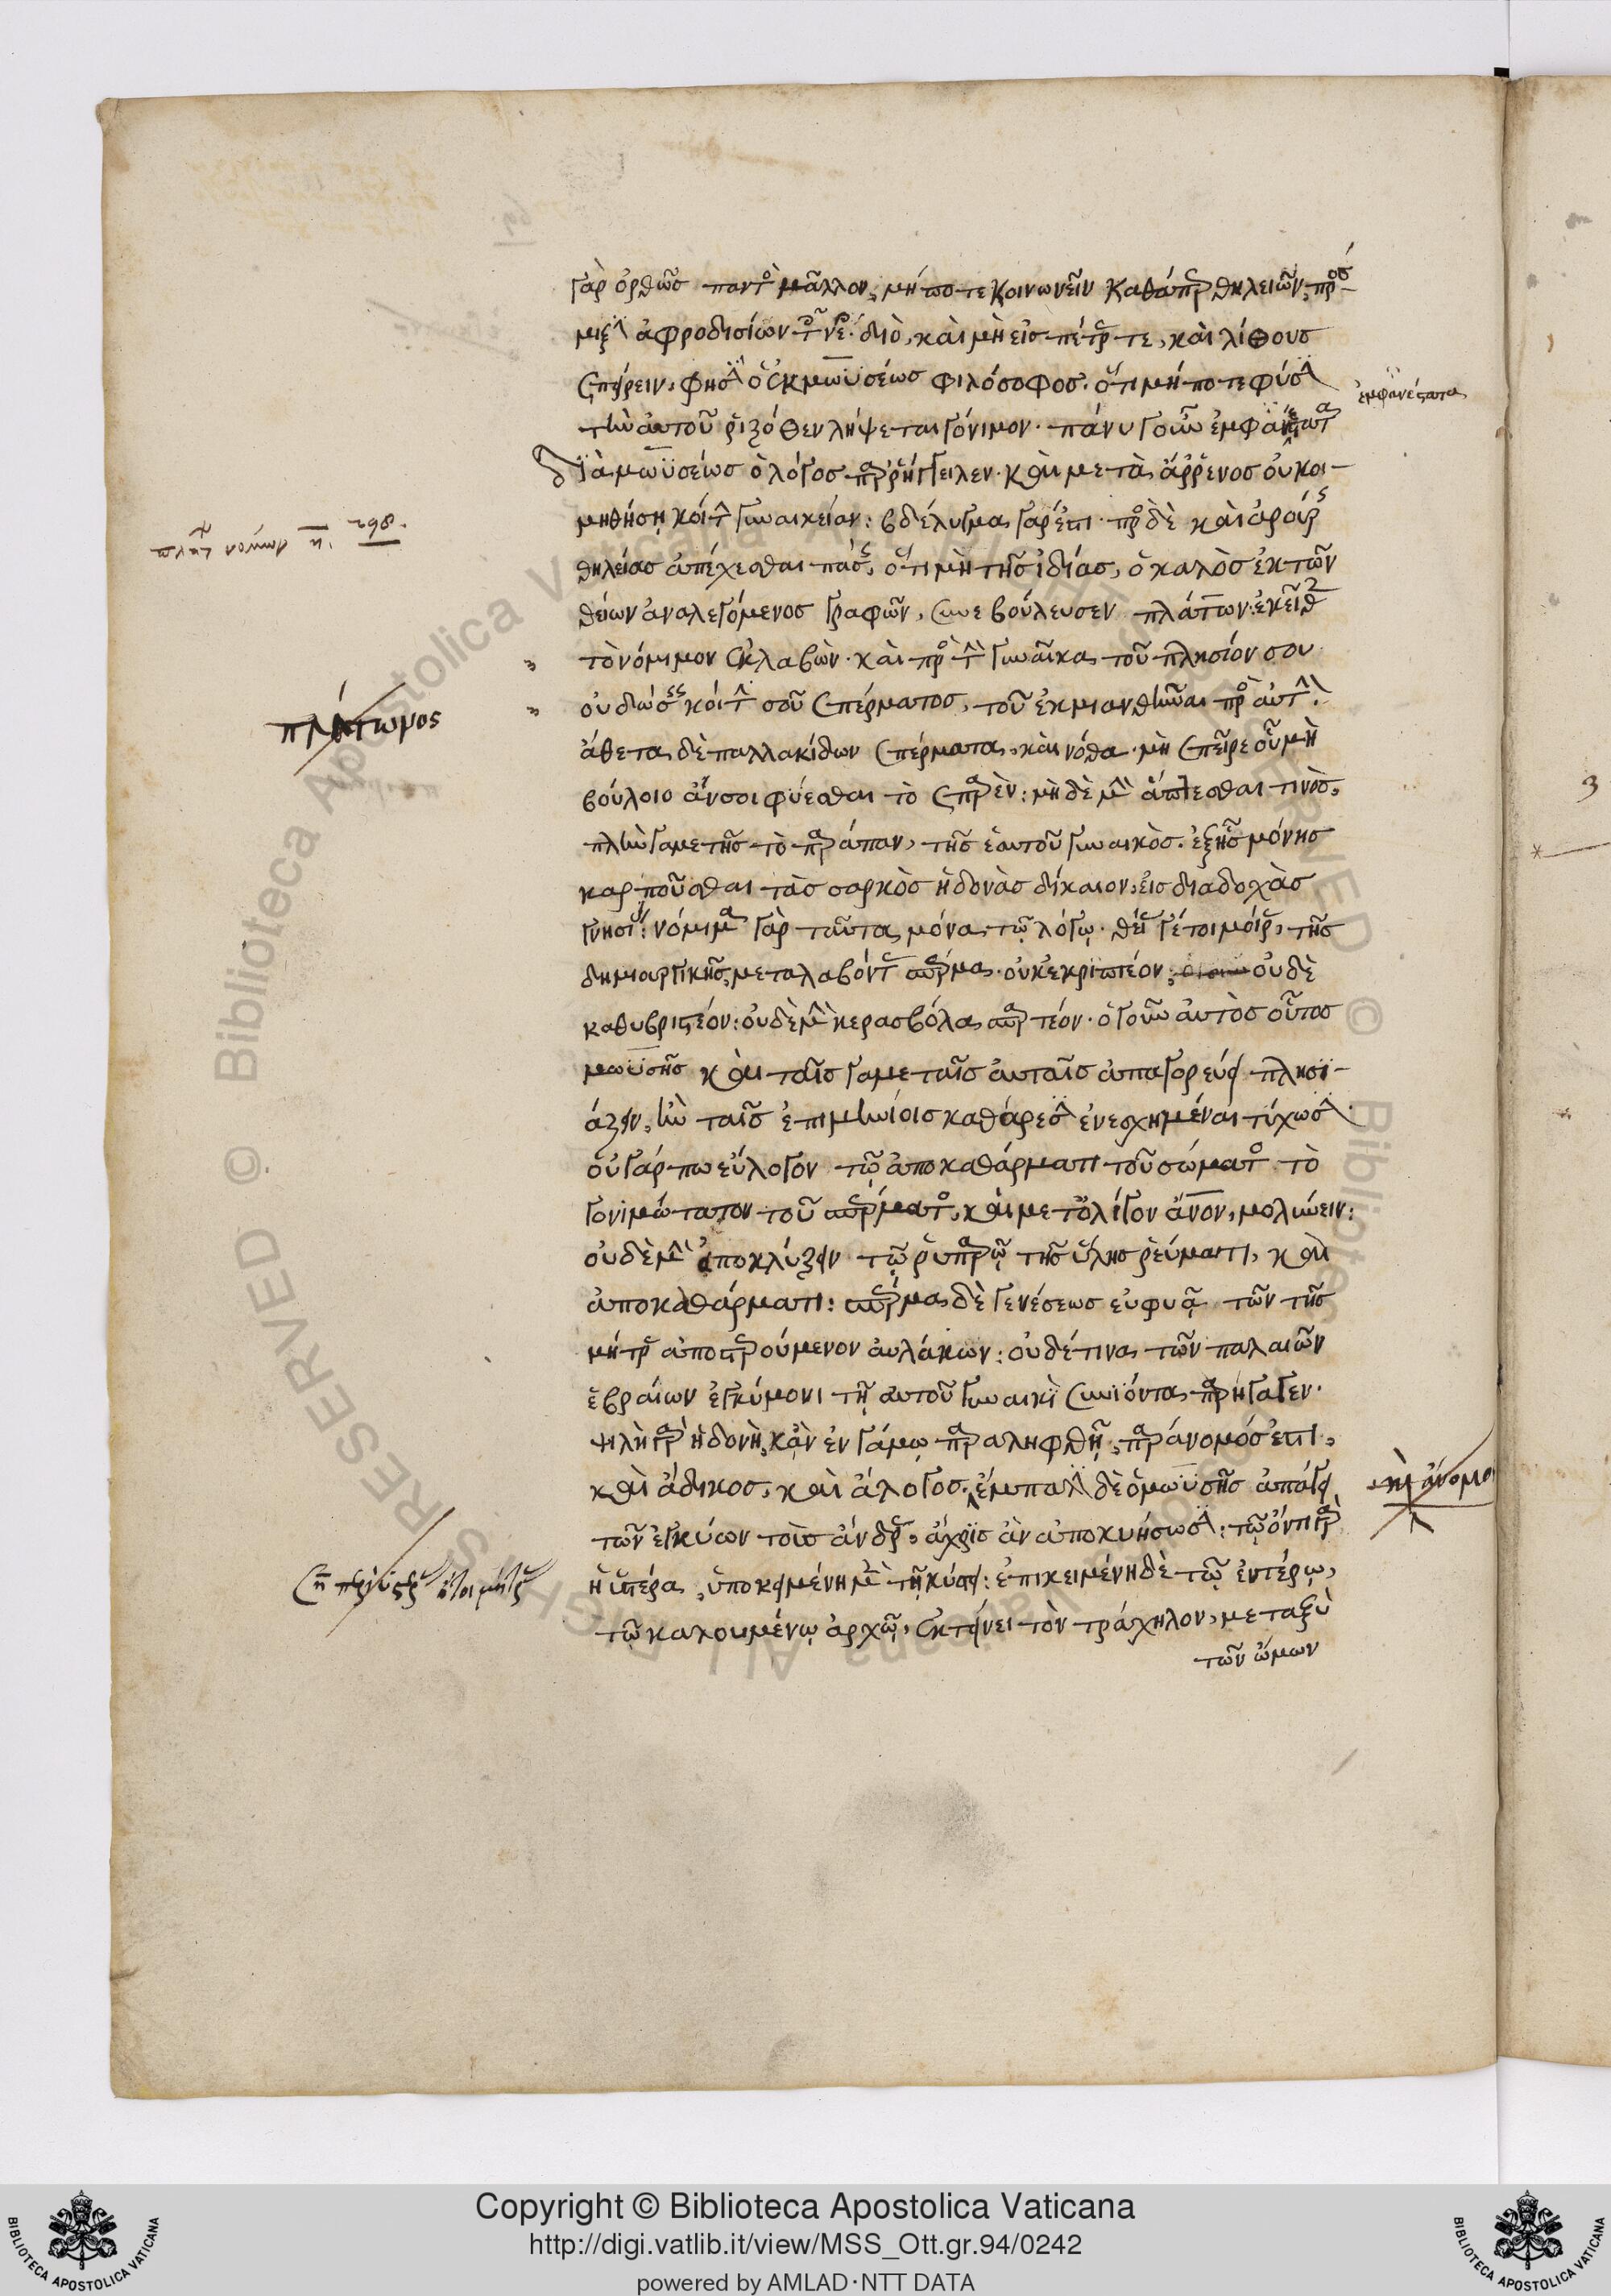 γὰρ ὀρθῶς παντὸς μᾶλλον, μήποτε κοινωνεῖν καθάπερ θηλειῶν, πρὸς
μιξιν ἀφροδισίων τοῖς νέοις. διὸ, καὶ μὴ εἰς πέτρας τε, καὶ λίθους
σπείρειν, φησὶν ὁ ἐκ μωϋσέως φιλόσοφος. ὅτι μήποτε φύσιν
τὴν αὐτοῦ ῥιζόθεν λήψεται γόνιμον. πάνυ γοῦν ἐμφανέστατα
ἐμφανέστατα
διὰ μωϋσέως ὁ λόγος παρήγγειλεν. καὶ μετὰ ἄρρενος οὐ κοι-
μηθήσῃ κοίτην γυναικείαν: βδέλυγμα γάρ ἐστι. πρὸς δὲ καὶ ἀρούρας
θηλείας ἀπέχεσθαι πάσης, ὅτι μὴ τῆς ἰδίας, ὁ καλὸς ἐκ τῶν
θείων ἀναλεγόμενος γραφῶν, συνεβούλευσεν πλάτων: ἐκεῖθεν
τὸ νόμιμον ἐκλαβών. καὶ πρὸς τὴν γυναῖκα τοῦ πλησίον σου
οὐ δώσεις κοίτην σοῦ σπέρματος, τοῦ ἐκμιανθῆναι πρὸς αὐτήν.
πλάτωνος
ἄθετα δὲ παλλακίδων σπέρματα, καὶ νόθα. μὴ σπεῖρε οὗ μὴ
βούλοιο ἄν σοι φύεσθαι τὸ σπαρέν: μηδὲ μὴν ἅπτεσθαι τινὸς,
πλὴν γαμετῆς τὸ παράπαν, τῆς ἑαυτοῦ γυναικὸς. ἐξ ἧς μόνης
καρποῦσθαι τὰς σαρκὸς ἡδονὰς δίκαιον, εἰς διαδοχὰς
γνησίων: νόμιμα γὰρ ταῦτα μόνα τῷ λόγῳ. θείας γέ τοι μοίρας, τῆς
δημιουργικῆς, μεταλαβόντας σπέρμα. οὐκ ἐκριπτέον, οὐδὲ
καθυβριστέον: οὐδὲ μὴν κερασβόλα σπαρτέον. ὁ γοῦν αὐτὸς οὗτος
μωϋσῆς καὶ ταῖς γαμεταῖς αὐταῖς ἀπαγορεύει πλησι-
άζειν, ἢν ταῖς ἐπιμηνίοις καθάρσεσιν ἐνεσχημέναι τύχωσιν.
οὐ γάρ πω εὔλογον τῷ ἀποκαθάρματι τοῦ σώματος τὸ
γονιμώτατον τοῦ σπέρματος, καὶ μετ' ὀλίγον ἄνον, μολύνειν:
οὐδὲ μὴν ἀποκλύζειν τῷ ῥυπαρῷ τῆς ὕλης ῥεύματι, καὶ
ἀποκαθάρματι: σπέρμα δὲ γενέσεως εὐφυᾷ τῶν τῆς
μήτρας ἀποστερούμενον αὐλάκων: οὐδέ τινα τῶν παλαιῶν
ἑβραίων ἐγκύμονι τῇ αὐτοῦ γυναικὶ συνιόντα παρήγαγεν.
ψιλὴ γὰρ ἡδονὴ, κἂν ἐν γάμῳ παραληφθῇ, παράνομός ἐστι,
καὶ ἄδικος, καὶ ἄλογος. ἔμπαλιν δὲ ὁ μωϋσῆς ἀπάγει
τῶν ἐγκύων τοὺς ἄνδρας, ἄχρις ἂν ἀποκυήσωσιν: τῷ ὄντι γὰρ
ἡ ὑστέρα, ὑποκειμένη μὲν τῇ κύστει: ἐπικειμένη δὲ τῷ ἐντέρῳ,
τῷ καλουμένῳ ἀρχῷ, ἐκτείνει τὸν τράχηλον, μεταξὺ
τῶν ὤμων